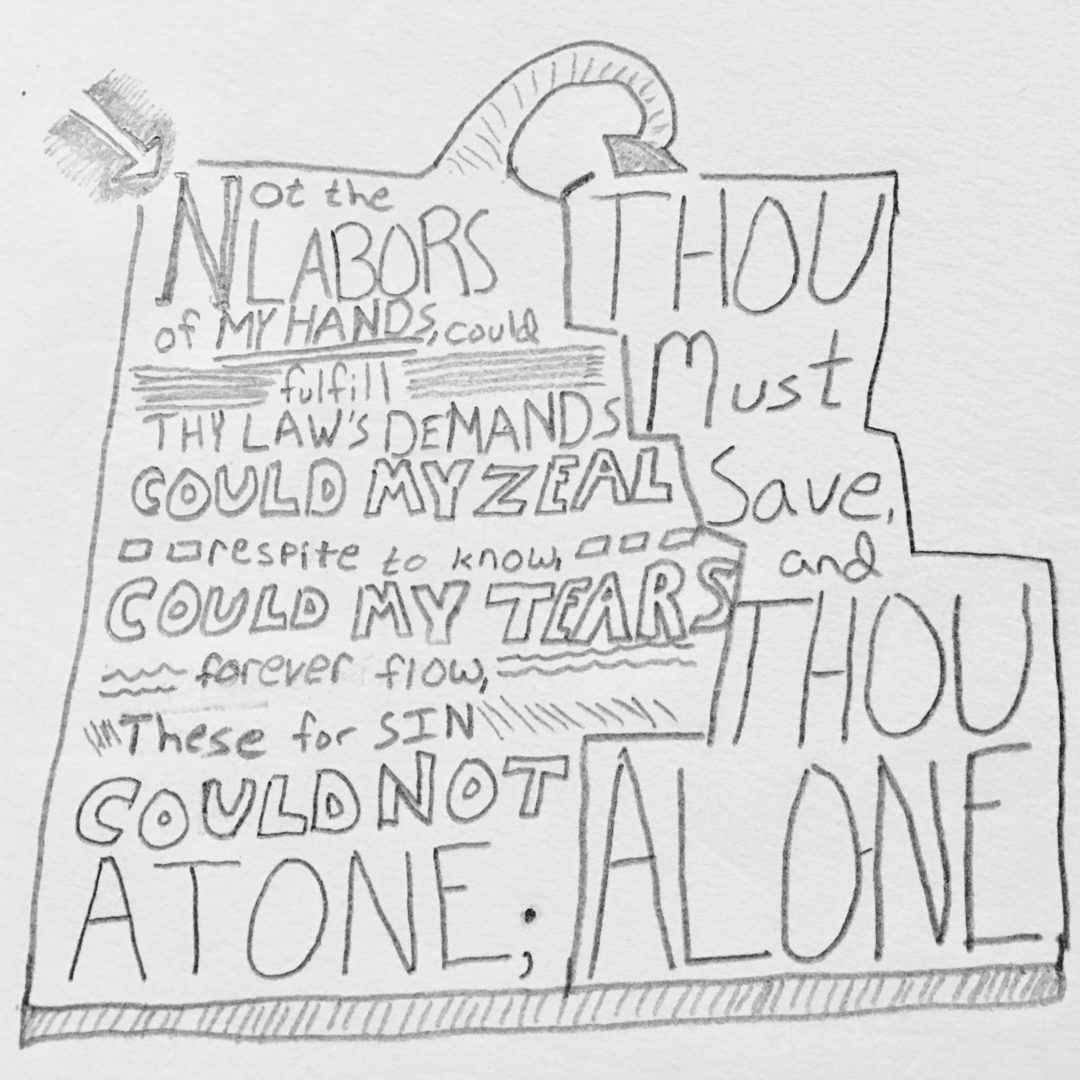 Not the
LABORS
of MY HANDS, could
fulfill
THY LAW'S DEMANDS
COULD MY ZEAL
respite to know,
COULD MY TEARS
forever flow,
These for SIN
COULD NOT
ATONE;
THOU
Must
Save,
and
THOU
ALONE.